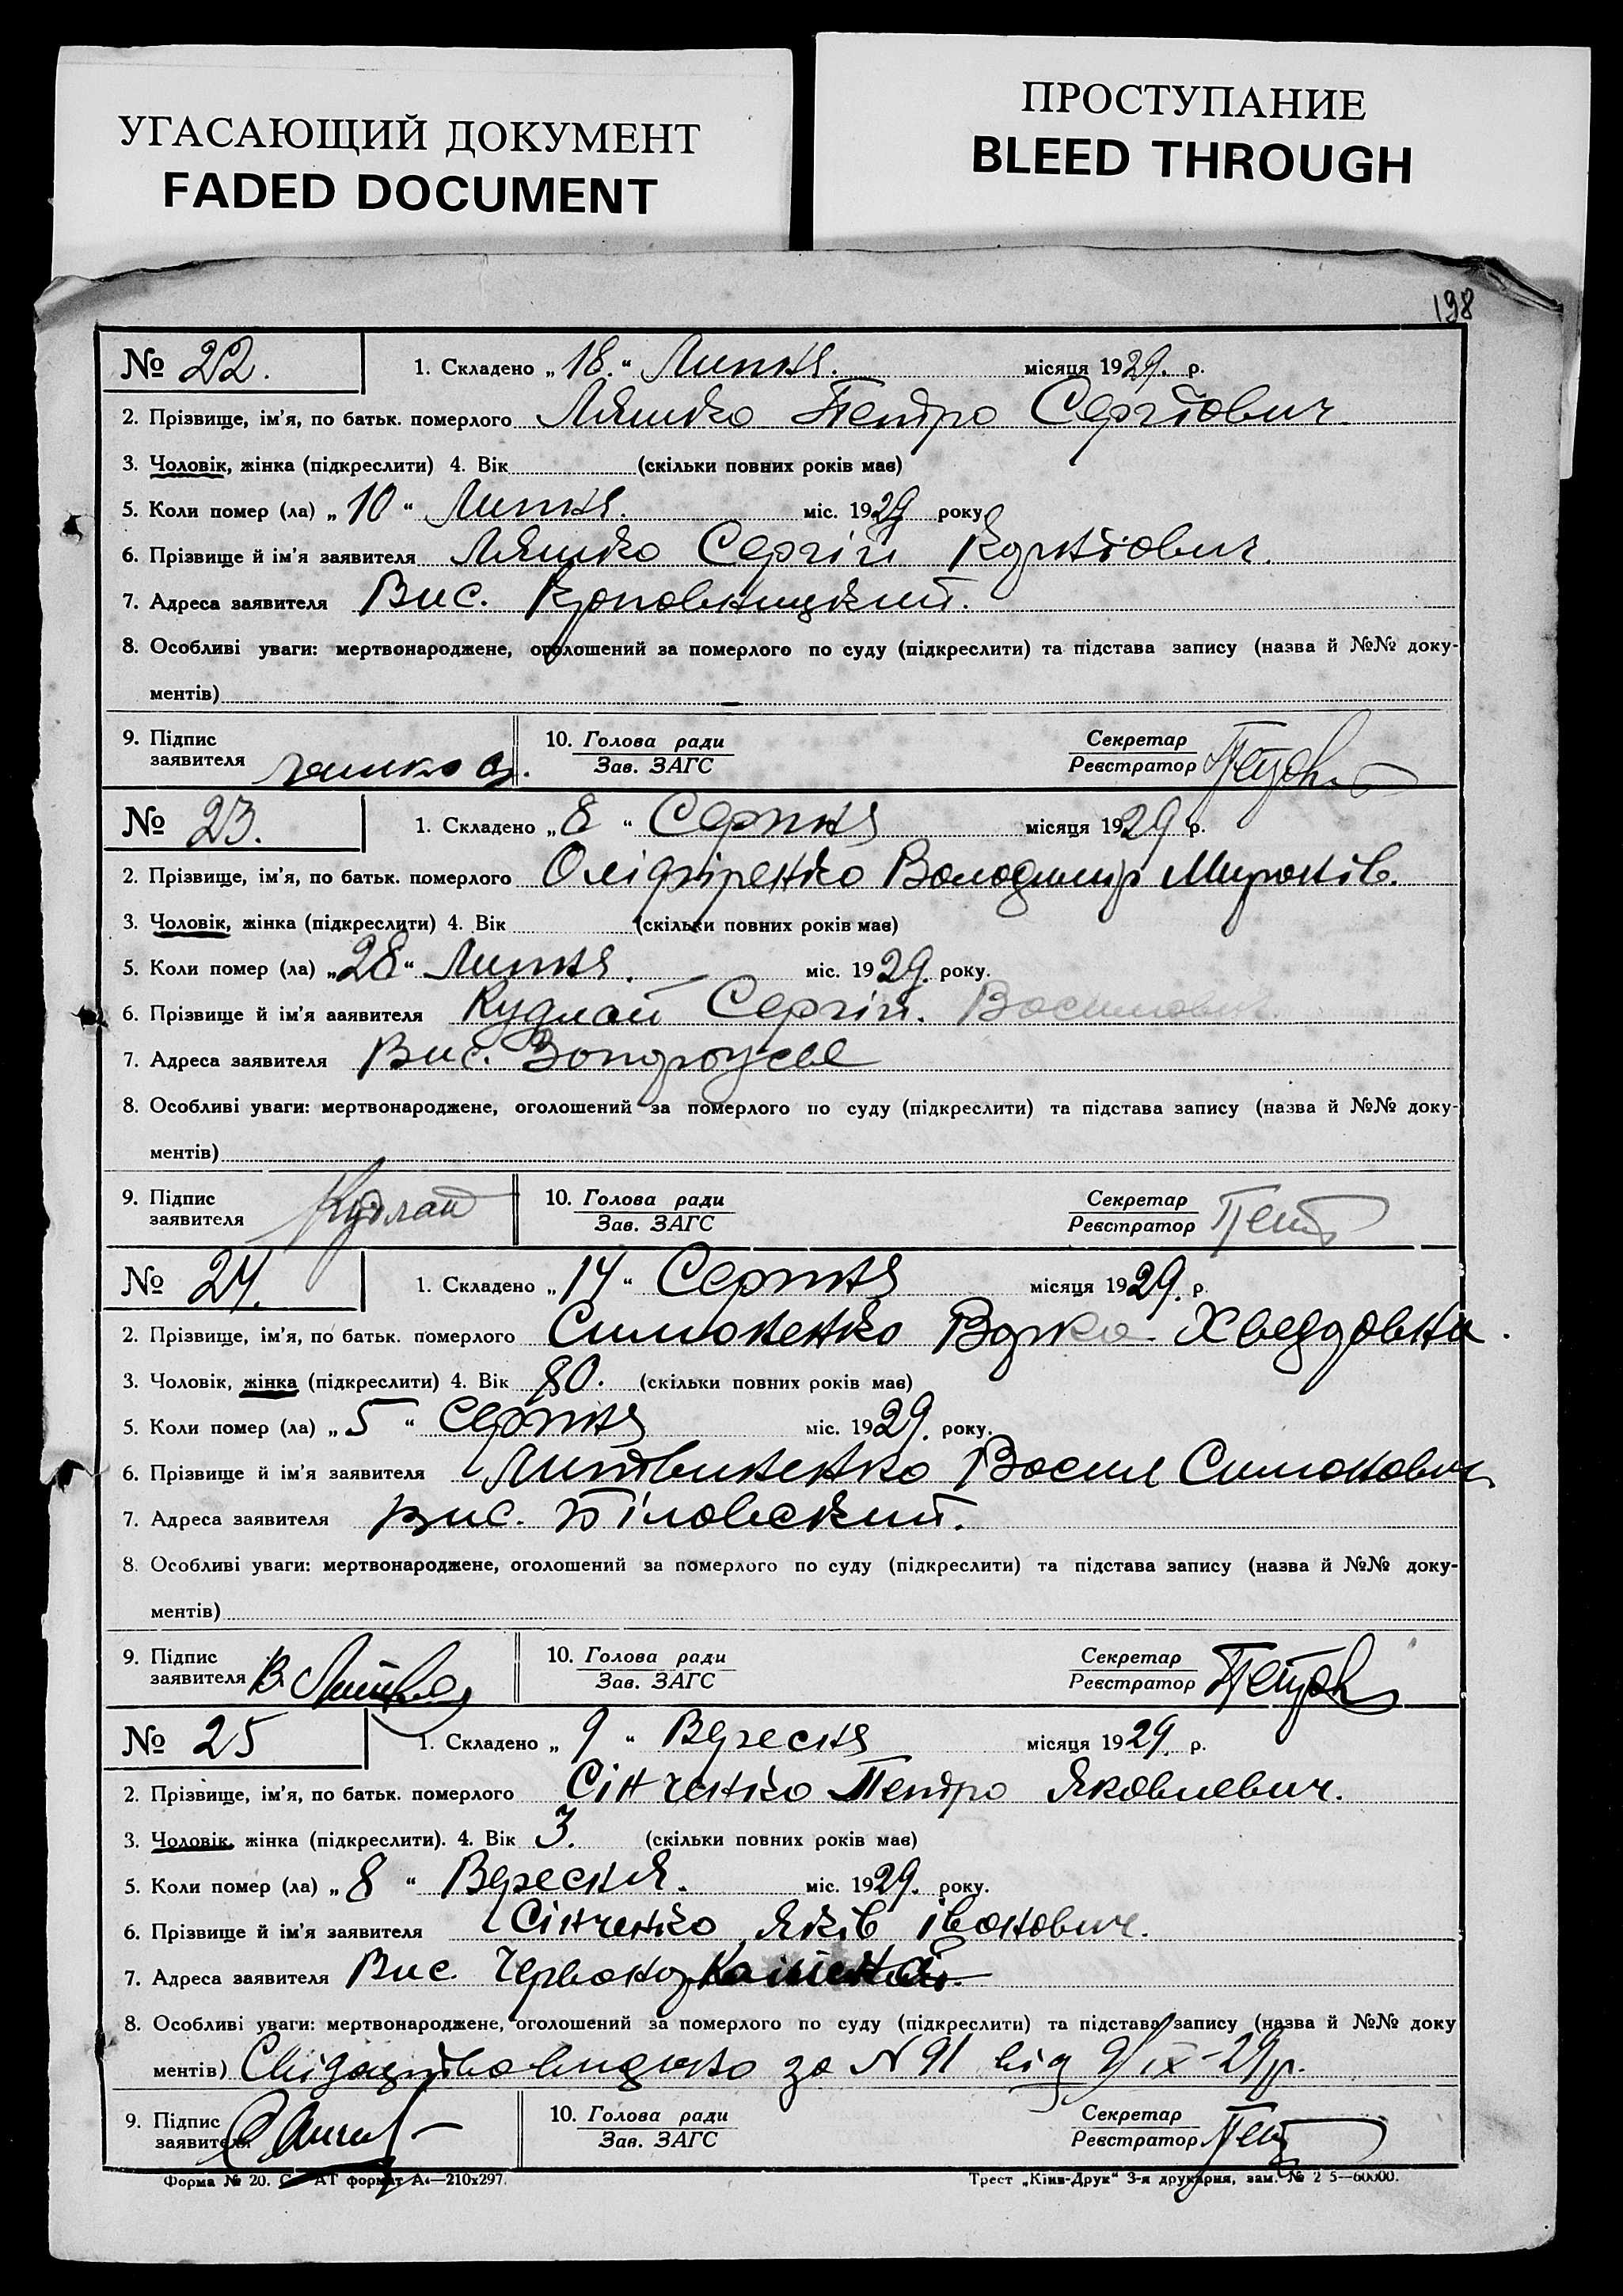 УГАСАЮЩИЙ ДОКУМЕНТ
FADED DOCUMENT
ПРОСТУПАНИЕ
BLEED THROUGH
198
№ 22. 1. Складено „18.“ Липня. місяця 1929. р.
2. Прізвище, ім'я, по батьк. померлого Ляшко Петро Сергїович.
3. Чоловік, жінка (підкреслити) 4. Вік (скільки повних років має)
5. Коли помер (ла) „10“ Липня. міс. 1929 року
6. Прізвище й ім'я заявителя Ляшко Сергій Корнїович.
7. Адреса заявителя Вис. Кроповницкий.
8. Особливі уваги: мертвонароджене, оголошений за померлого по суду (підкреслити) та підстава запису (назва й №№ доку-
ментів)
9. Підпис заявителя 10. Голова ради Зав. ЗАГС Секретар Реєстратор
№ 23. 1. Складено „8“ Серпня місяця 1929 р.
2. Прізвище, ім'я, по батьк. померлого Оліфіренко Володимир Миронів.
3. Чоловік, жінка (підкреслити) 4. Вік (скільки повних років має)
5. Коли помер (ла) „28“ Липня. міс. 1929. року.
6. Прізвище й ім'я заявителя Кудлай Сергій. Васильович
7. Адреса заявителя Вис.
8. Особливі уваги: мертвонароджене, оголошений за померлого по суду (підкреслити) та підстава запису (назва й №№ доку-
ментів)
9. Підпис заявителя Кудлай 10. Голова ради Зав. ЗАГС Секретар Реєстратор
№ 24. 1. Складено „14“ Серпня місяця 1929. р.
2. Прізвище, ім'я, по батьк. померлого Симоненко Варка Хведдовна.
3. Чоловік, жінка (підкреслити) 4. Вік 80. (скільки повних років має)
5. Коли помер (ла) „5“ серпня міс. 1929. року.
6. Прізвище й ім'я заявителя Литвиненко Василь Симонович
7. Адреса заявителя Вис. Біловский.
8. Особливі уваги: мертвонароджене, оголошений за померлого по суду (підкреслити) та підстава запису (назва й №№ доку-
ментів)
9. Підпис заявителя 10. Голова ради Зав. ЗАГС Секретар Реєстратор
№ 25 1. Складено „9“ Вересня місяця 1929. р.
2. Прізвище, ім'я, по батьк. померлого Сінченко Петро Яковлевич.
3. Чоловік, жінка (підкреслити). 4. Вік 3. (скільки повних років має)
5. Коли помер (ла) „8“ Вересня. міс. 1929. року.
6. Прізвище й ім'я заявителя Сінченко Яків Іванович.
7. Адреса заявителя Вис.
8. Особливі уваги: мертвонароджене, оголошений за померлого по суду (підкреслити) та підстава запису (назва й №№ доку
ментів) за N 91 від 9/IX-29р.
9. Підпис заявителя 10. Голова ради Зав. ЗАГС Секретар Реєстратор
Форма № 20. формат А4—210х297. Трест „Київ-Друк“ 3-я друкарня, зам. № 2 5—60000.